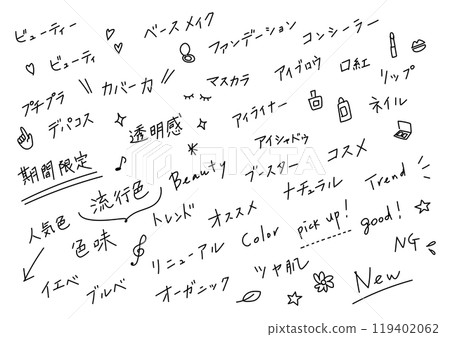 ビューティー
ベースメイク
ファンデーション
コンシーラー
ビューティ
カバー力
マスカラ
アイブロウ
口紅
リップ
プチプラ
デパコス
透明感
アイライナー
ネイル
アイシャドウ
期間限定
Beauty
ブースター
コスメ
流行色
ナチュラル
Trend
人気色
色味
トレンド
オススメ
Color
pick up!
good!
リニューアル
NG
イエベ
ブルベ
オーガニック
ツヤ肌
New
PIXTA
119402062